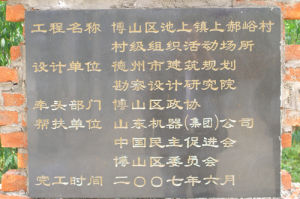 工程名称 博山区池上镇上郝峪村
村级组织活动场所
设计单位 德州市建筑规划
勘察设计研究院
牵头部门 博山区政协
帮扶单位 山东机器(集团)公司
中国民主促进会
博山区委员会
完工时间 二〇〇七年六月